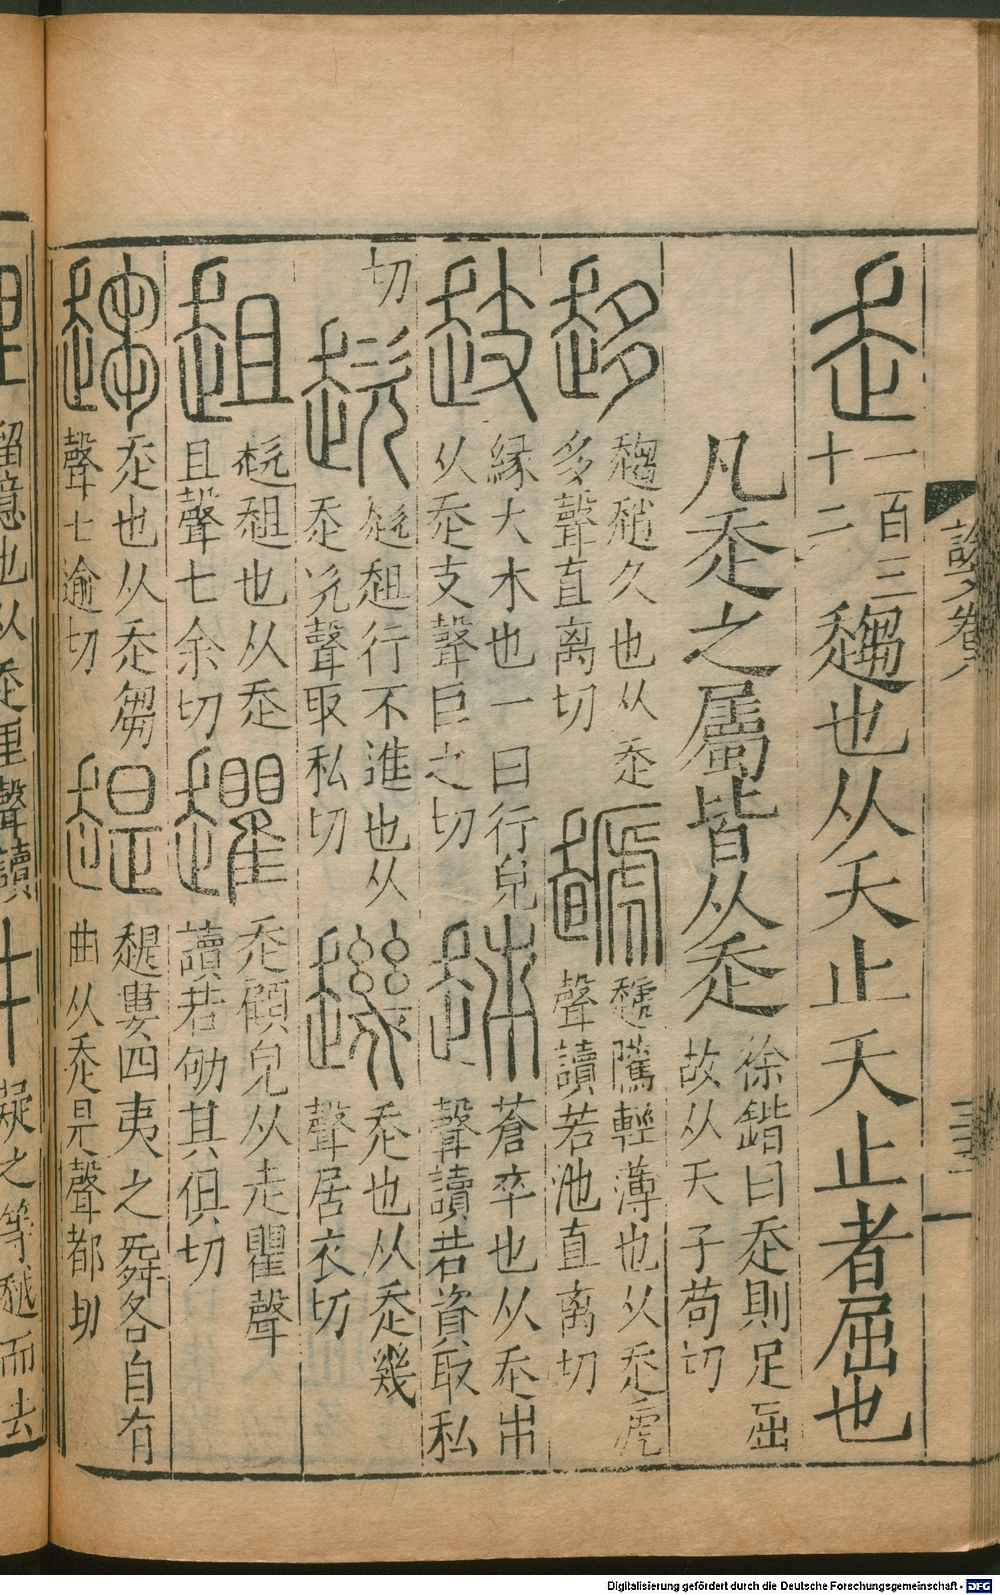 說文卷
走 一百三
十二
趨也从夭止夭止者屈也
凡走之屬皆从走 徐鍇曰走則足屈
故从夭子苟切
趍 趨趙久也从走
多聲直离切
騰輕薄也从走虒
聲讀若池直离切
緣大木也一曰行皃
从走支聲巨之切
趀 蒼卒也从走𠂔
聲讀若資取私
切
趑 趑趄行不進也从
走次聲取私切
走也从走幾
聲居衣切
趄 趑趄也从走
且聲七余切
走顧皃从走瞿聲
讀若劬其俱切
趨 走也从走芻
聲七逾切
趧 趧婁四夷之舞各自有
曲从走是聲都
留意也从走里聲讀
Digitalisierung gefördert durch die Deutsche Forschungsgemeinschaft - DFG